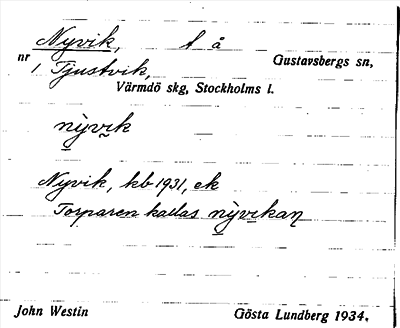 Nyvik, t å Gustavsbergs sn,
nr 1 Tjustvik,
Värmdö skg, Stockholms l.
nỳvik
Nyvik, kb 1931, ek
Torparen kallas nỳvikaṇ
John Westin Gösta Lundberg 1934.